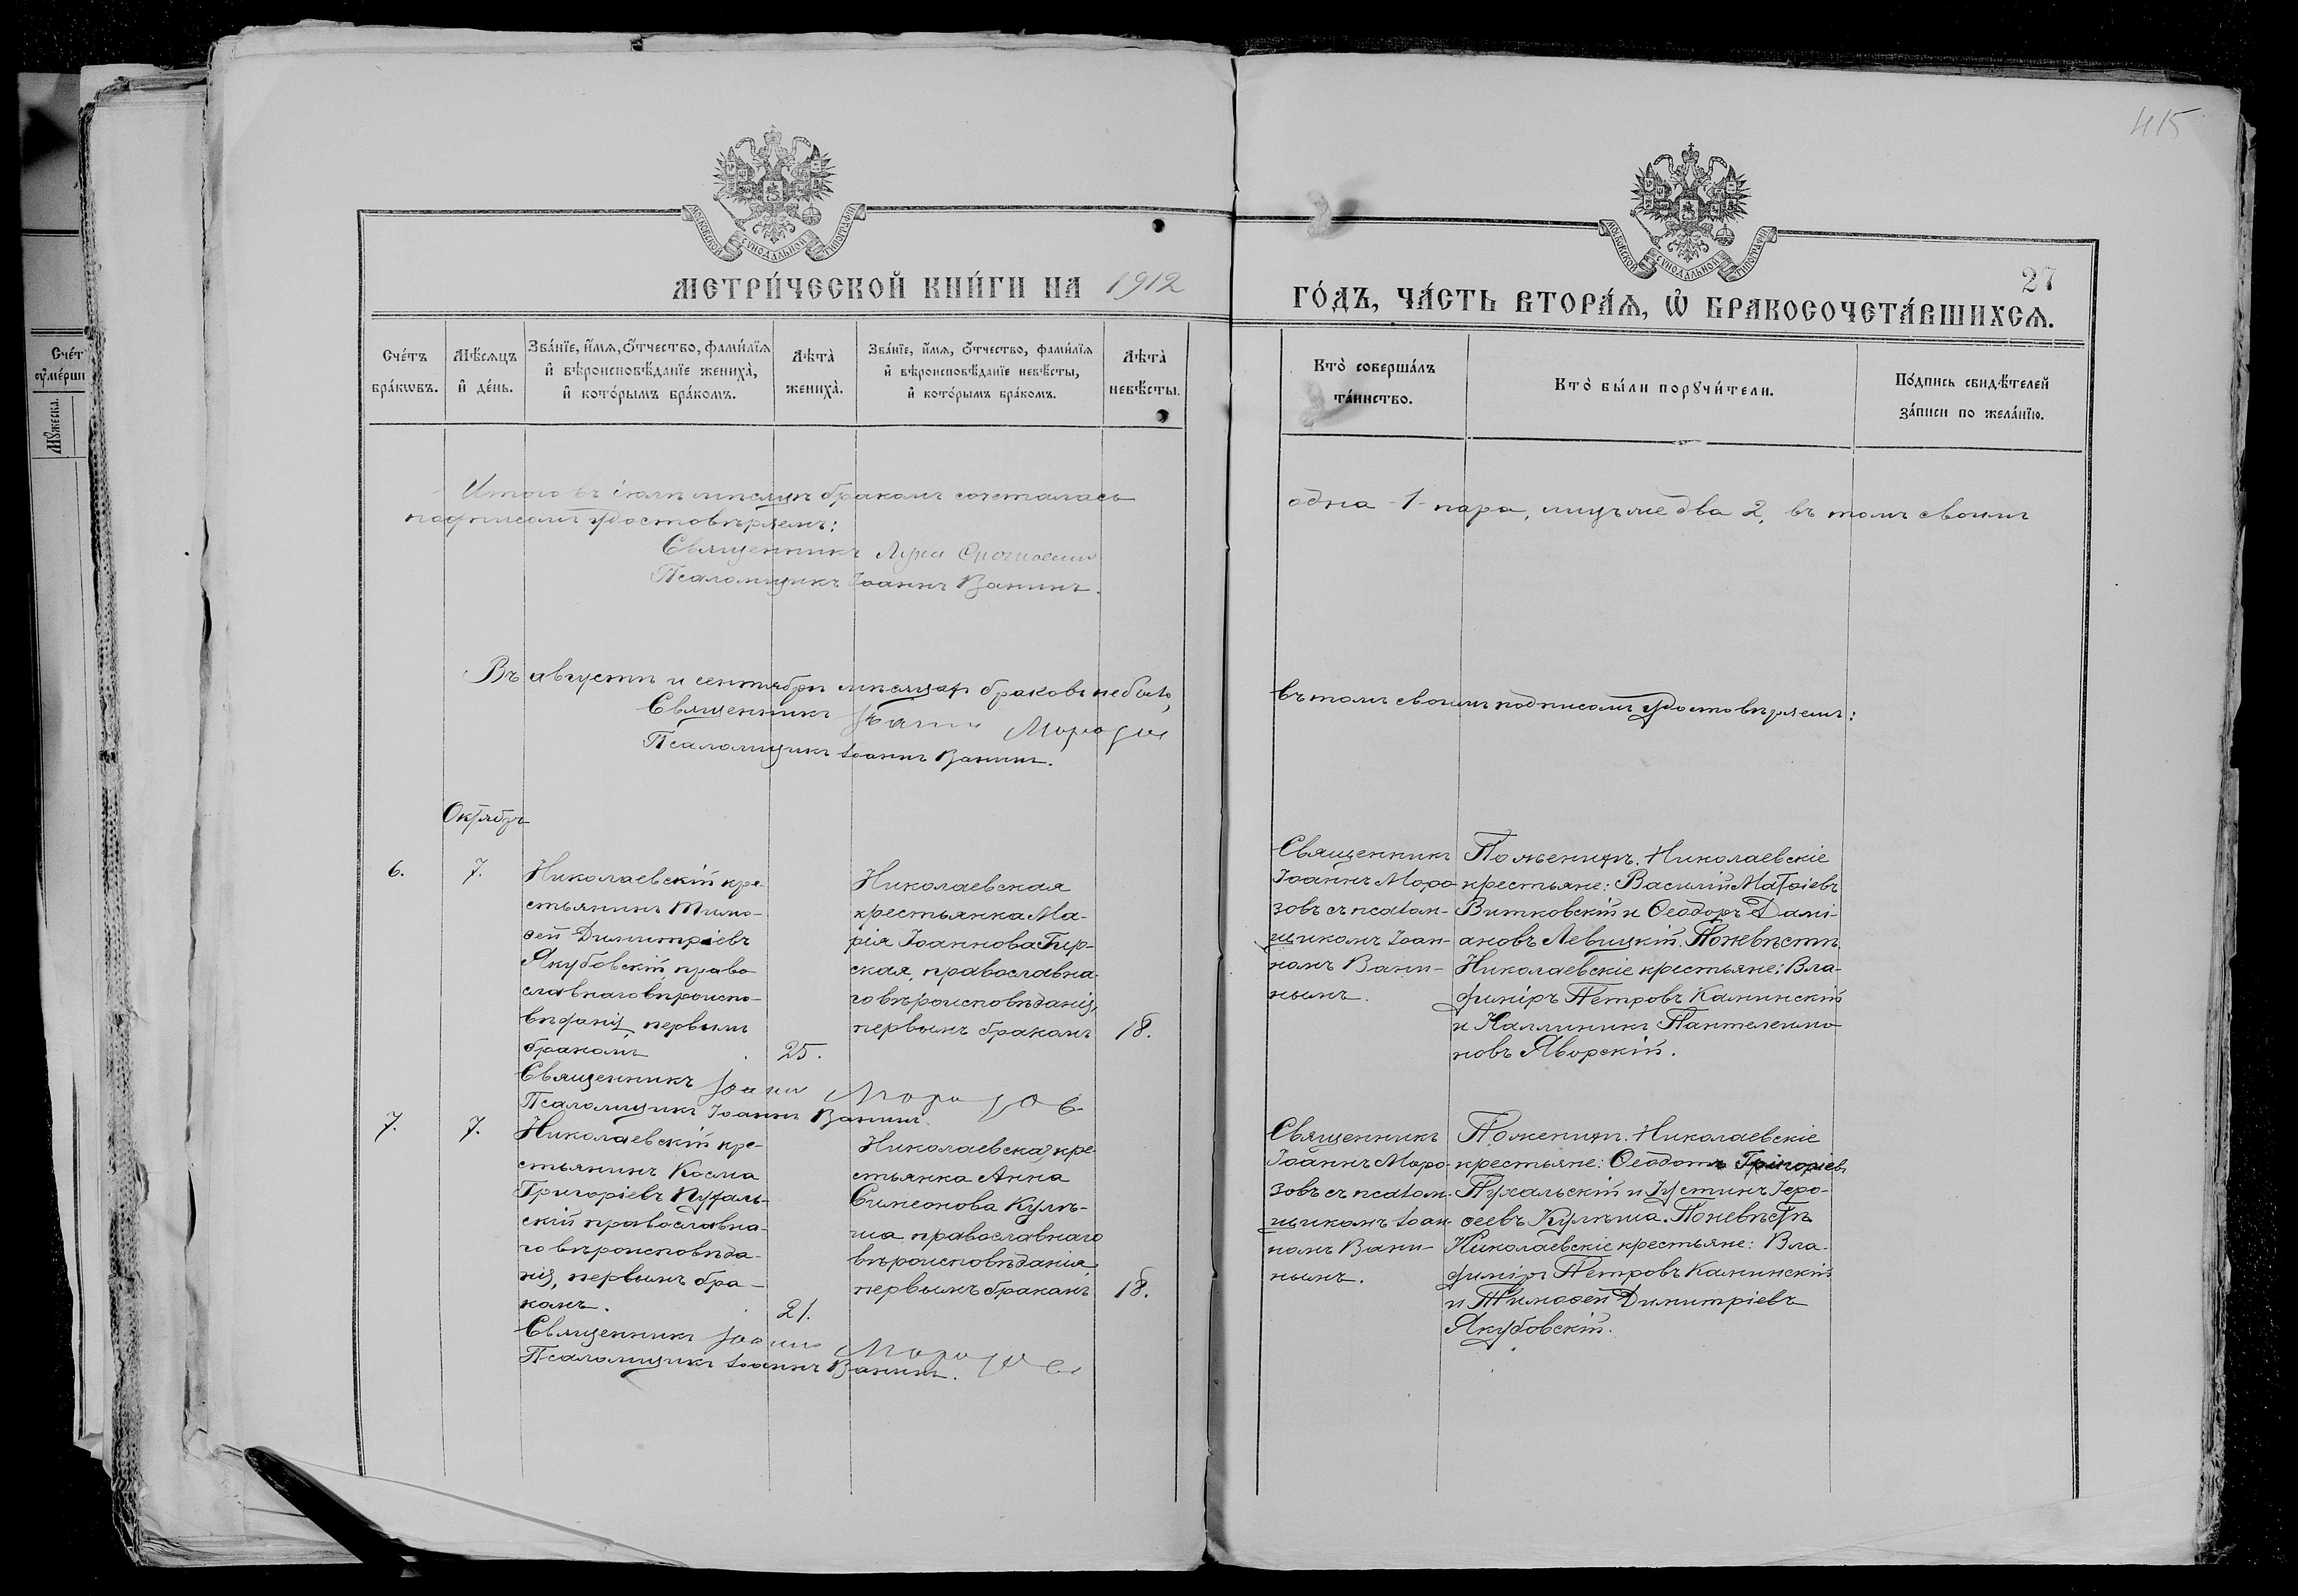 415
МОСКОВСКОЙ СѴНОДАЛЬНОЙ ТИПОГРАФІИ
МОСКОВСКОЙ СѴНОДАЛЬНОЙ ТИПОГРАФІИ
27
МЕТРИ́ЧЕСКОЙ КНИ́ГИ НА 1912
ГО́ДЪ, ЧА́СТЬ ВТОРА́Ѧ, Ѽ БРАКОСОЧЕТА́ВШИХСѦ.
Сче́тъ
бра́кѡвъ.
Мѣ́сѧцъ
и҆ де́нь.
Зва́нїе, и҆́мѧ, ѻ҆́тчество, фами́лїѧ
и҆ вѣроисповѣ́данїе жениха̀,
и҆ кото́рымъ бра́комъ.
Лѣта̀
жениха̀.
Зва́нїе, и҆́мѧ, ѻ҆́тчество, фами́лїѧ
и҆ вѣроисповѣ́данїе невѣ́сты,
и҆ кото́рымъ бра́комъ.
Лѣта̀
невѣ́сты.
Кто̀ соверша́лъ
та́инство.
Кто̀ бы́ли порꙋчи́тели.
По́дпись свидѣ́телей
за́писи по жела́нїю.
Сче́т
ᲂу҆ме́рши
Мꙋ́жеска.
Итого въ іюлѣ мѣсяцѣ бракомъ сочеталась
одна -1- пара, лицъ же два 2, въ томъ своимъ
подписомъ удостовѣряемъ:
Священникъ Лука
Псаломщикъ Іоаннъ Ванинъ.
Въ августѣ и сентябрѣ мѣсяцах браковъ не было,
въ томъ своимъ подписомъ удостовѣряемъ:
Священникъ Іоаннъ Морозов
Псаломщикъ Іоаннъ Ванинъ.
Октябрь
6.
7.
Николаевскій кре-
стьянинъ Тимо-
ѳей Димитріевъ
Якубовскій, право
славнаго вѣроиспо-
вѣданія, первымъ
бракомъ
25.
Николаевская
крестьянка Ма-
рія Іоаннова Гир-
ская, православна-
го вѣроисповѣданія,
первымъ бракомъ
18.
Священникъ
Іоаннъ Моро
зовъ съ псалом-
щикомъ Іоан-
номъ Вани-
нымъ.
По женихѣ. Николаевскіе
крестьяне: Василій Матѳіевъ
Витковскій и Ѳеодоръ Дамі-
ановъ Левицкій. По невѣстѣ
Николаевскіе крестьяне: Вла-
диміръ Петровъ Каминскій
и Каллиникъ Пантелеимо-
новъ Яворскій.
Священникъ Іоаннъ Морозов
Псаломщикъ Іоаннъ Ванинъ.
7.
7.
Николаевскій кре-
стьянинъ Косма
Григоріевъ Пухаль-
скій православна-
го вѣроисповѣда-
нія, первымъ бра-
комъ.
21.
Николаевская кре
стьянка Анна
Симеонова Кулѣ-
ша православнаго
вѣроисповѣданія
первымъ бракомъ
18.
Священникъ
Іоаннъ Моро-
зовъ съ псалом-
щикомъ Іоан-
номъ Вани-
нымъ.
По женихѣ. Николаевскіе
крестьяне: Ѳеодотъ Григоріевъ
Пухальскій и Іустинъ Іеро-
ѳеевъ Кулѣша. По невѣстѣ
Николаевскіе крестьяне: Вла-
диміръ Петровъ Каминскій
и Тимоѳей Димитріевъ
Якубовскій.
Священникъ Іоаннъ Морозов
Псаломщикъ Іоаннъ Ванинъ.